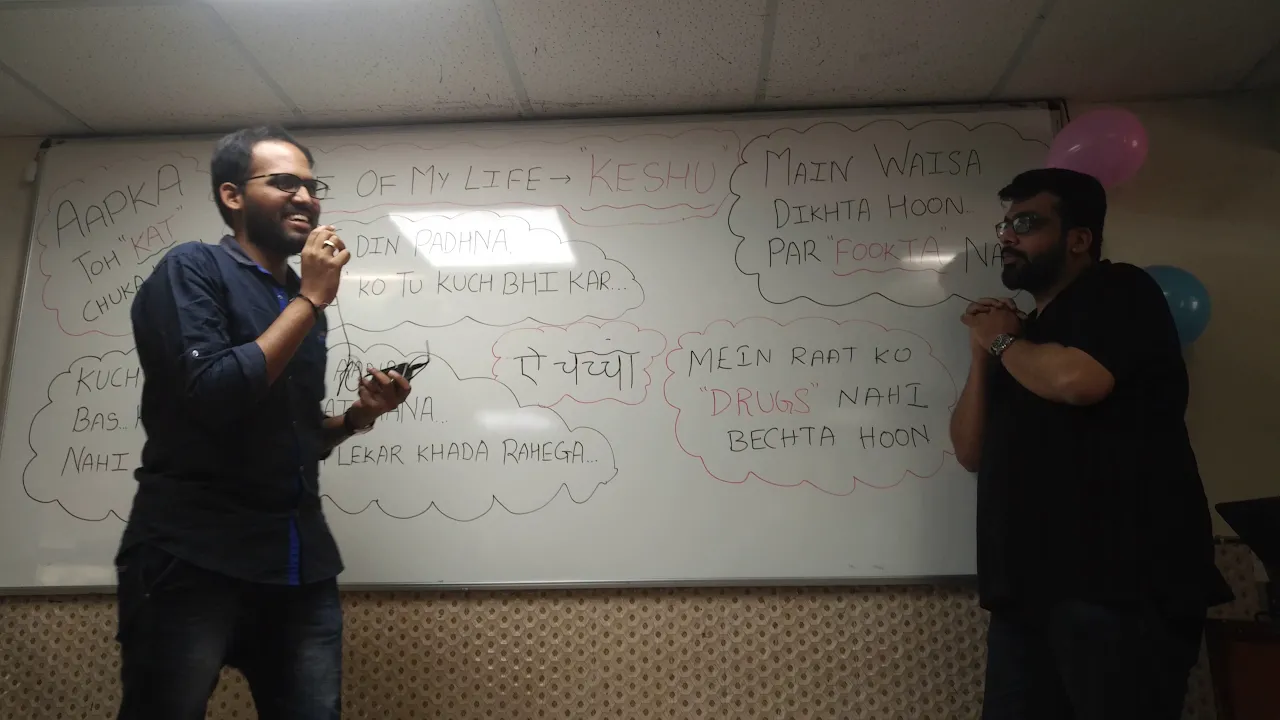 AAPKA
TOH "KAT"
CHUKA
OF MY LIFE → "KESHU"
DIN PADHNA,
KO TU KUCH BHI KAR...
MAIN WAISA
DIKHTA HOON..
PAR "FOOKTA" NA
KUCH
BAS..
NAHI
LEKAR KHADA RAHEGA...
ऐ चच्चा
MEIN RAAT KO
"DRUGS" NAHI
BECHTA HOON